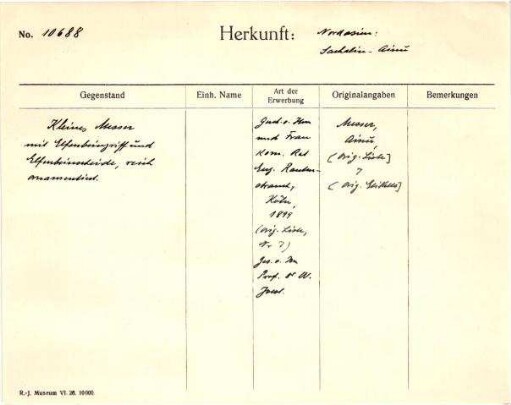 No. 10688
Herkunft:
Nordasien:
Sachalin-Ainu
Gegenstand
Einh. Name
Art der
Erwerbung
Originalangaben
Bemerkungen
Kleines Messer
mit Elfenbeingriff und
Elfenbeinscheide, reich
ornamentiert.
Gesch. v. Herrn
und Frau
Kom. Rat
Eug. Rauten-
strauch,
Köln,
1899
(orig. Liste,
Nr 7)
Ges. v. Hn
Prof. Dr W.
Joest.
Messer,
Ainu
(Orig. Liste]
7
(Orig.
R.-J. Museum VI. 26. 10000.